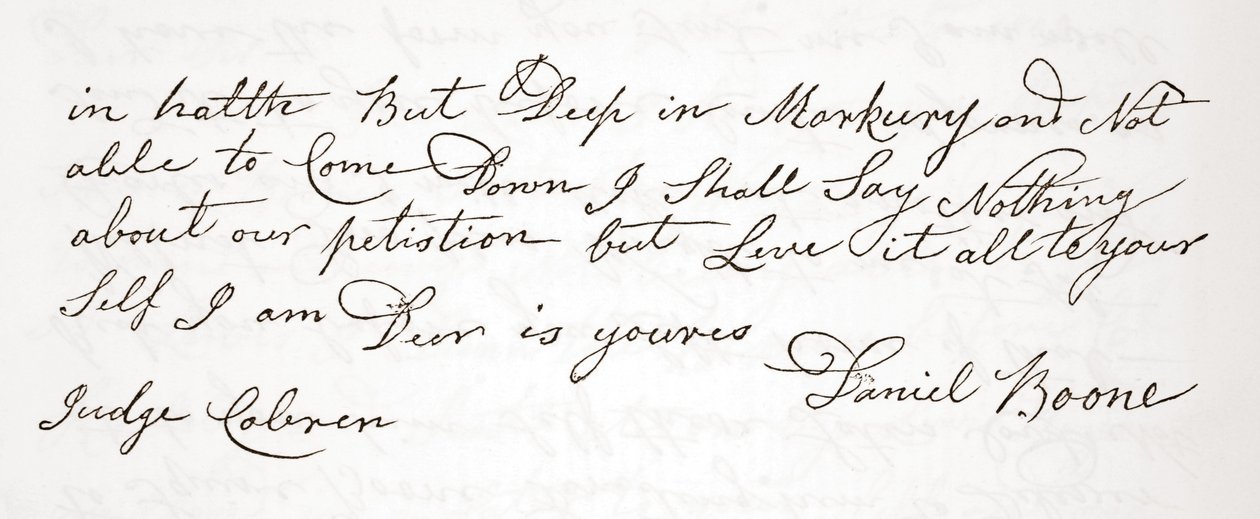 in halth But Deep in Markury and Not
able to Come Down I Shall Say Nothing
about our petistion but Leve it all to your
Self I am Deer is youres
Daniel Boone
Judge Cobren